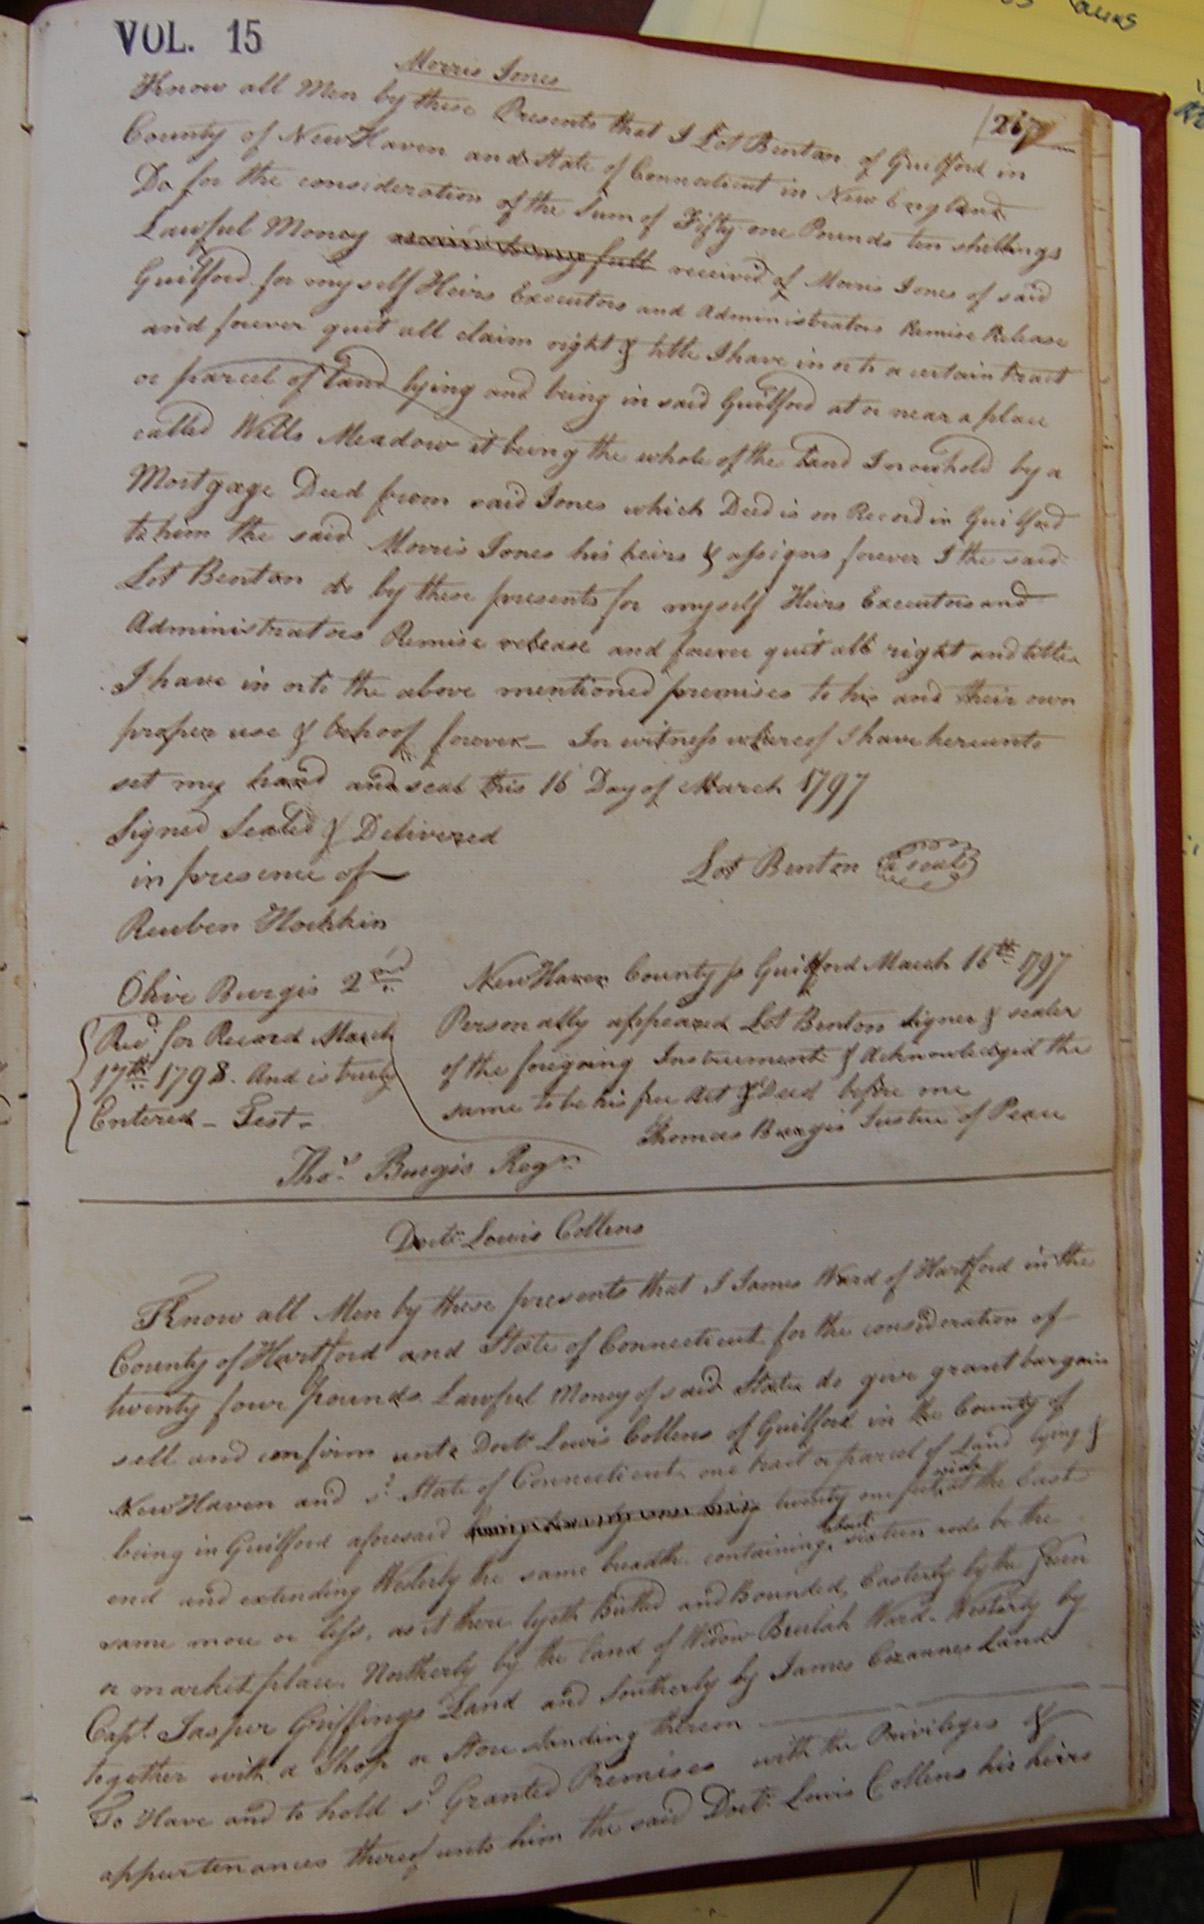 VOL. 15
Morris Jones
267
Know all Men by these Presents that I Lot Benton of Guilford in
County of New Haven and State of Connecticut in New England
Do for the consideration of the Sum of Fifty one Pounds ten shillings
Lawful Money received of Morris Jones of said
Guilford for myself Heirs Executors and Administrators Remise Release
and forever quit all claim right & title I have in or to a certain tract
or parcel of Land lying and being in said Guilford at or near a place
called Wells Meadow it being the whole of the Land I now hold by a
Mortgage Deed from said Jones which Deed is on Record in Guilford
to him the said Morris Jones his heirs & assigns forever I the said
Lot Benton do by these presents for myself Heirs Executors and
Administrators Remise release and forever quit all right and title
I have in or to the above mentioned premises to his and their own
proper use & behoof forever – In witness whereof I have hereunto
set my hand and seal this 16 Day of March 1797
Signed Sealed & Delivered
in presence of
Lot Benton a seal
Reuben Hotchkin
Olive Burgis 2nd
New Haven County ss Guilford March 16th 1797
Personally appeared Lot Benton signer & sealer
of the foregoing Instrument & Acknowledged the
same to be his free Act & Deed before me
Thomas Burgis Justice of Peace
Recd for Record March
17th 1798. And is truly
Entered – Test –
Thos Burgis Regr
Doctr Lewis Collens
Know all Men by these presents that I James Ward of Hartford in the
County of Hartford and State of Connecticut for the consideration of
twenty four pounds Lawful Money of said State do give grant bargain
sell and confirm unto Doctr Lewis Collens of Guilford in the County of
New Haven and sd State of Connecticut one tract or parcel of Land lying &
being in Guilford aforesaid twenty one feet wide at the East
end and extending Westerly the same breadth containing about sixteen rods be the
same more or less, as it there lyeth Butted and Bounded, Easterly by the Green
or market place. Northerly by the land of Widow Beulah Ward. Westerly by
Capt. Jasper Griffings Land and Southerly by James Land
together with a Shop or Store standing thereon
To Have and to hold sd Granted Premises with the Privileges &
appurtenances thereof unto him the said Doctr Lewis Collens his heirs